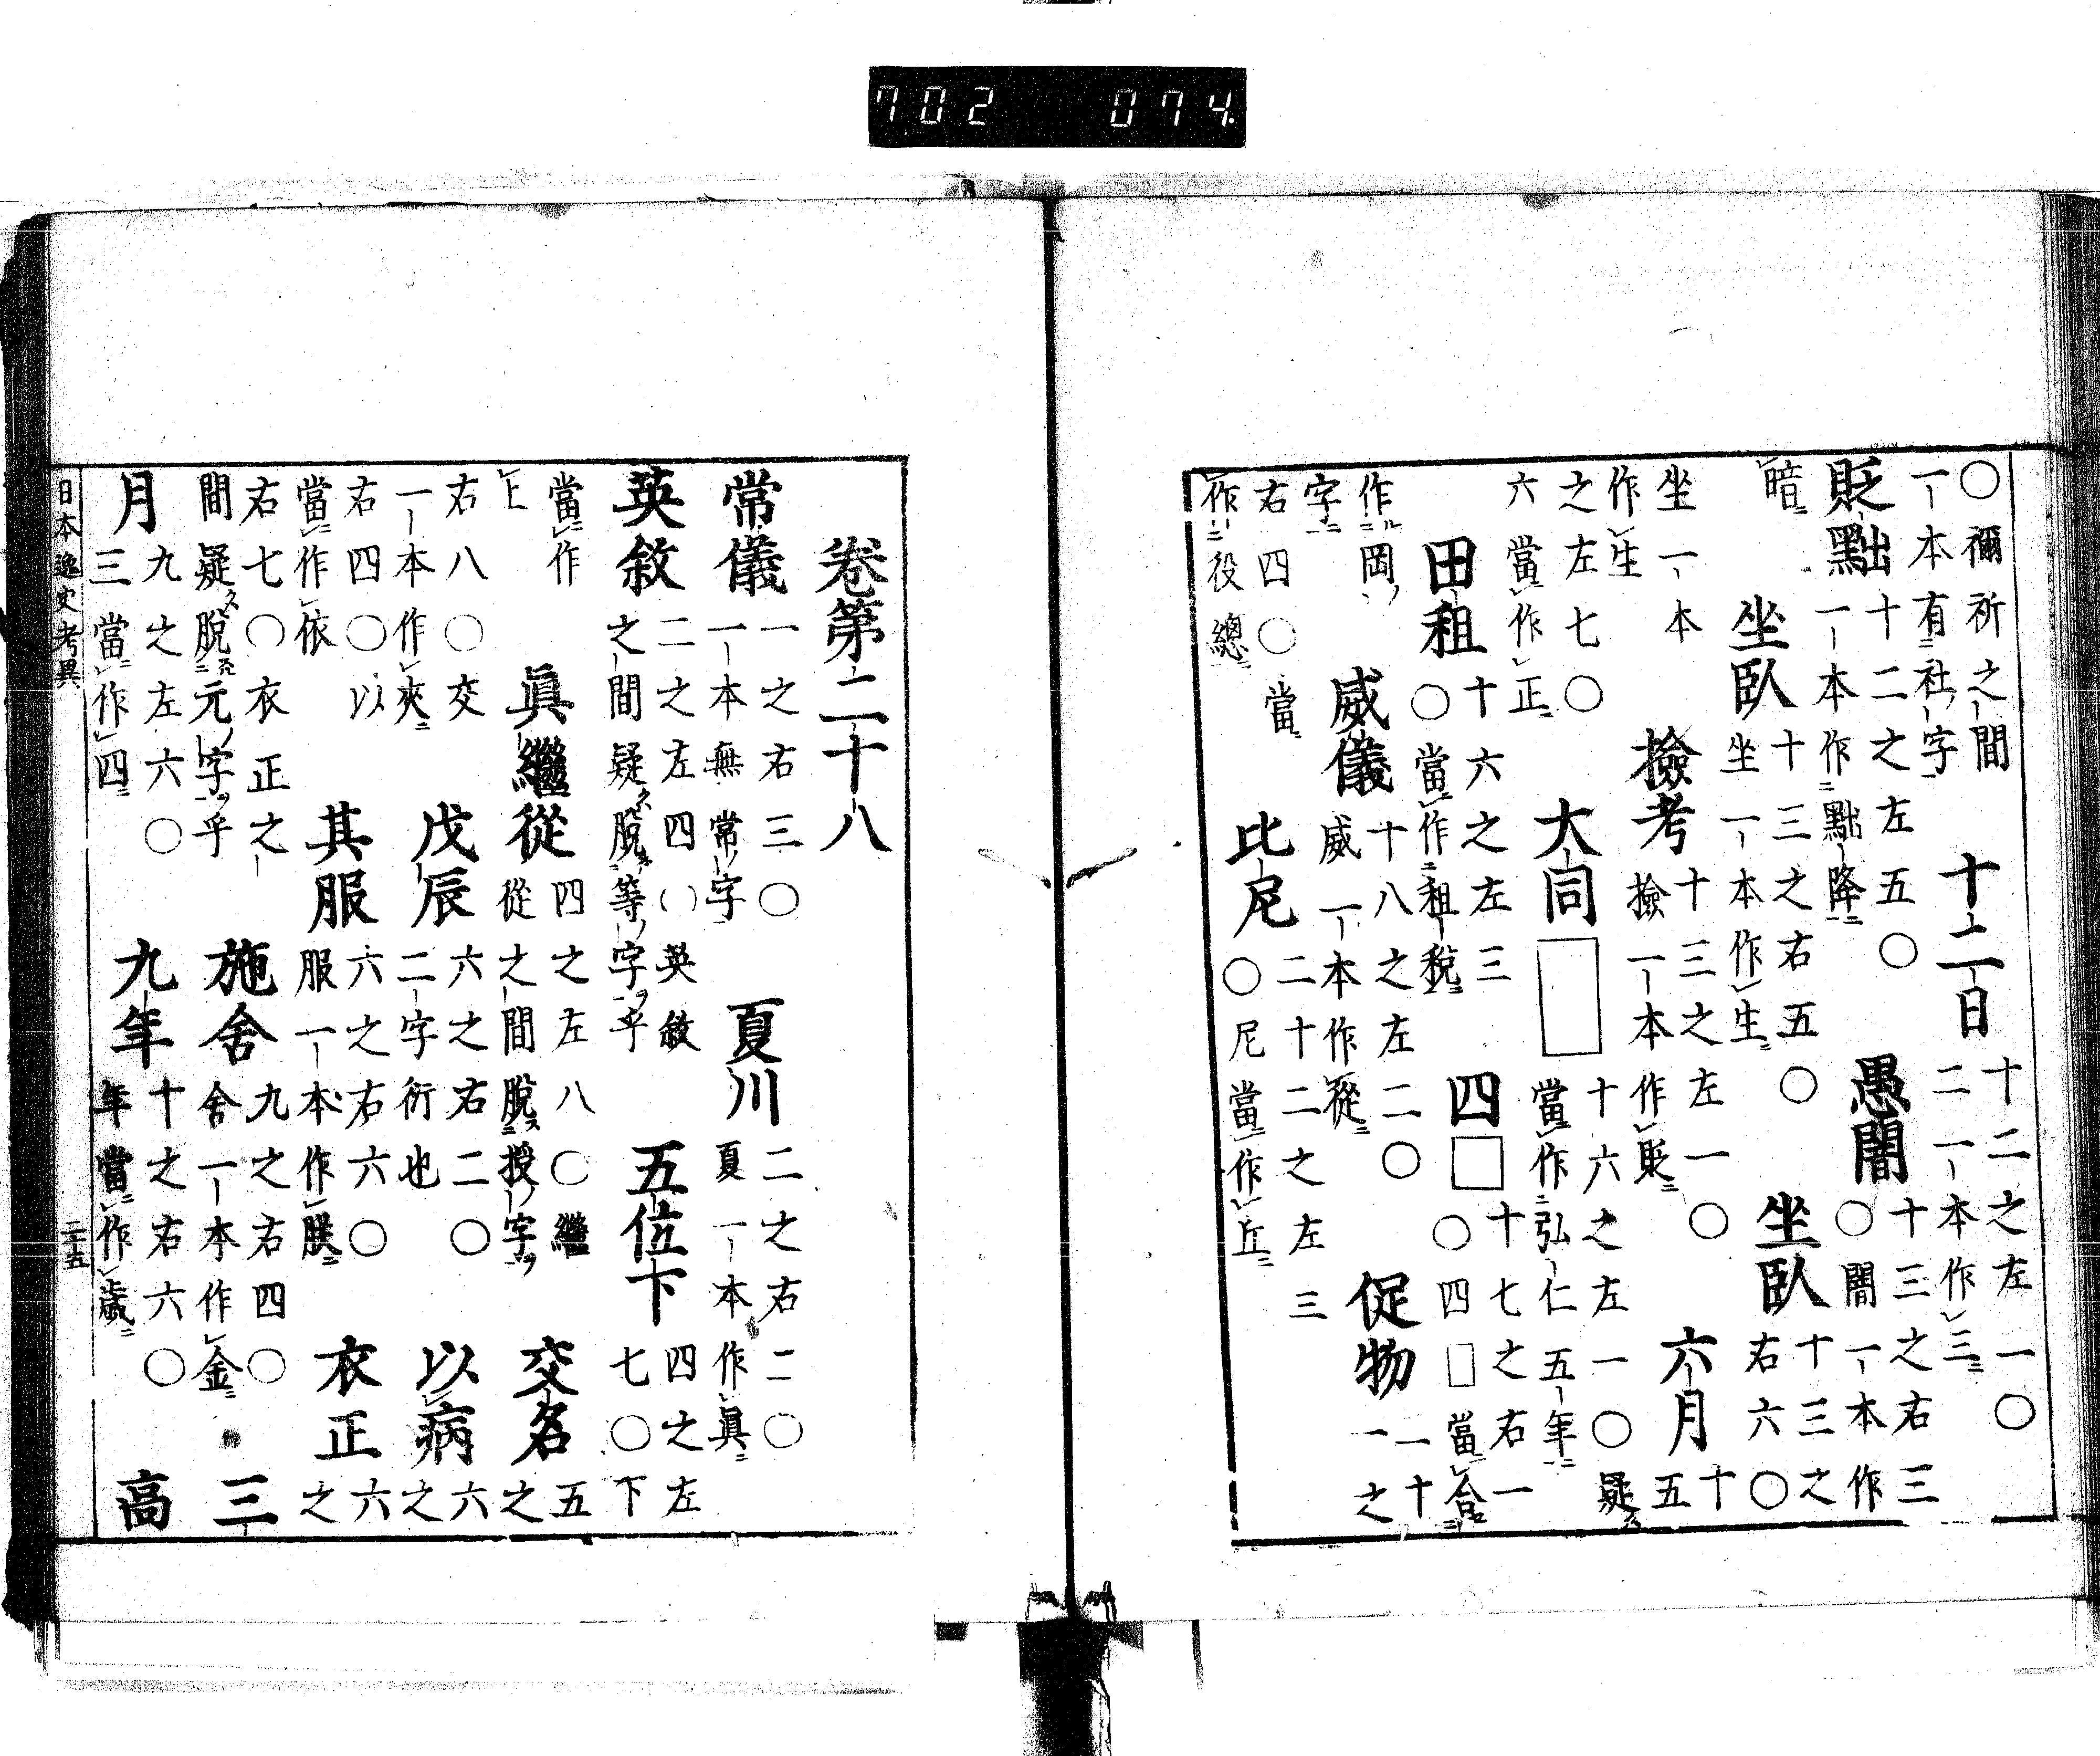 〇彌祈之間一本有社字 十二日 十二之左一〇二一本作三
貶黜 十二之左五〇一本作黜降 愚闇 十三之右三〇闇一本作
暗 坐臥 十三之右五〇坐一本作生 坐臥 十三之右六〇
坐一本作生 撿考 十三之左一〇撿一本作貶 六月 十五
之左七〇六當作正 大同□ 十六之左一〇疑當作弘仁五年
田租 十六之左三〇當作租税 四□ 十七之右一〇四□當合
作岡字 威儀 十八之左二〇威一本作從 促物 二十一之
右四〇當作役總 比尼 二十二之左三〇尼當作丘
卷第二十八
常儀 一之右三〇一本無常字 夏川 二之右二〇夏一本作眞
英敘 二之左四〇英敘之間疑脫等字乎 五位下 四之左七〇下
當作上 眞繼從 四之左八〇繼從之間脫授字 交名 五之
右八〇交一本作夾 戊辰 六之右二〇二字衍也 以病 六之
右四〇以當作依 其服 六之右六〇服一本作朕 衣正 六之
右七〇衣正之間疑脫元字乎 施舍 九之右四〇舍一本作金 三
月 九之左六〇三當作四 九年 十之右六〇年當作歳 高
日本逸史考異 二十五
702 074